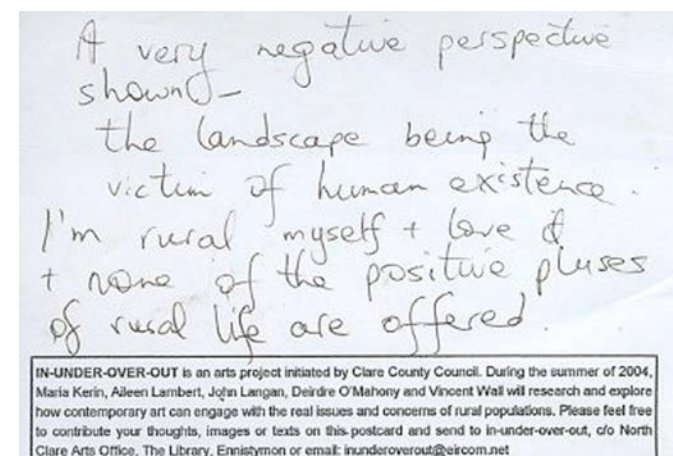 A very negative perspective
shown –
the landscape being the
victim of human existence.
I'm rural myself + love it
+ none of the positive pluses
of rural life are offered.
IN-UNDER-OVER-OUT is an arts project initiated by Clare County Council. During the summer of 2004,
Maria Kerin, Aileen Lambert, John Langan, Deirdre O'Mahony and Vincent Wall will research and explore
how contemporary art can engage with the real issues and concerns of rural populations. Please feel free
to contribute your thoughts, images or texts on this postcard and send to in-under-over-out, c/o North
Clare Arts Office, The Library, Ennistymon or email: inunderoverout@eircom.net